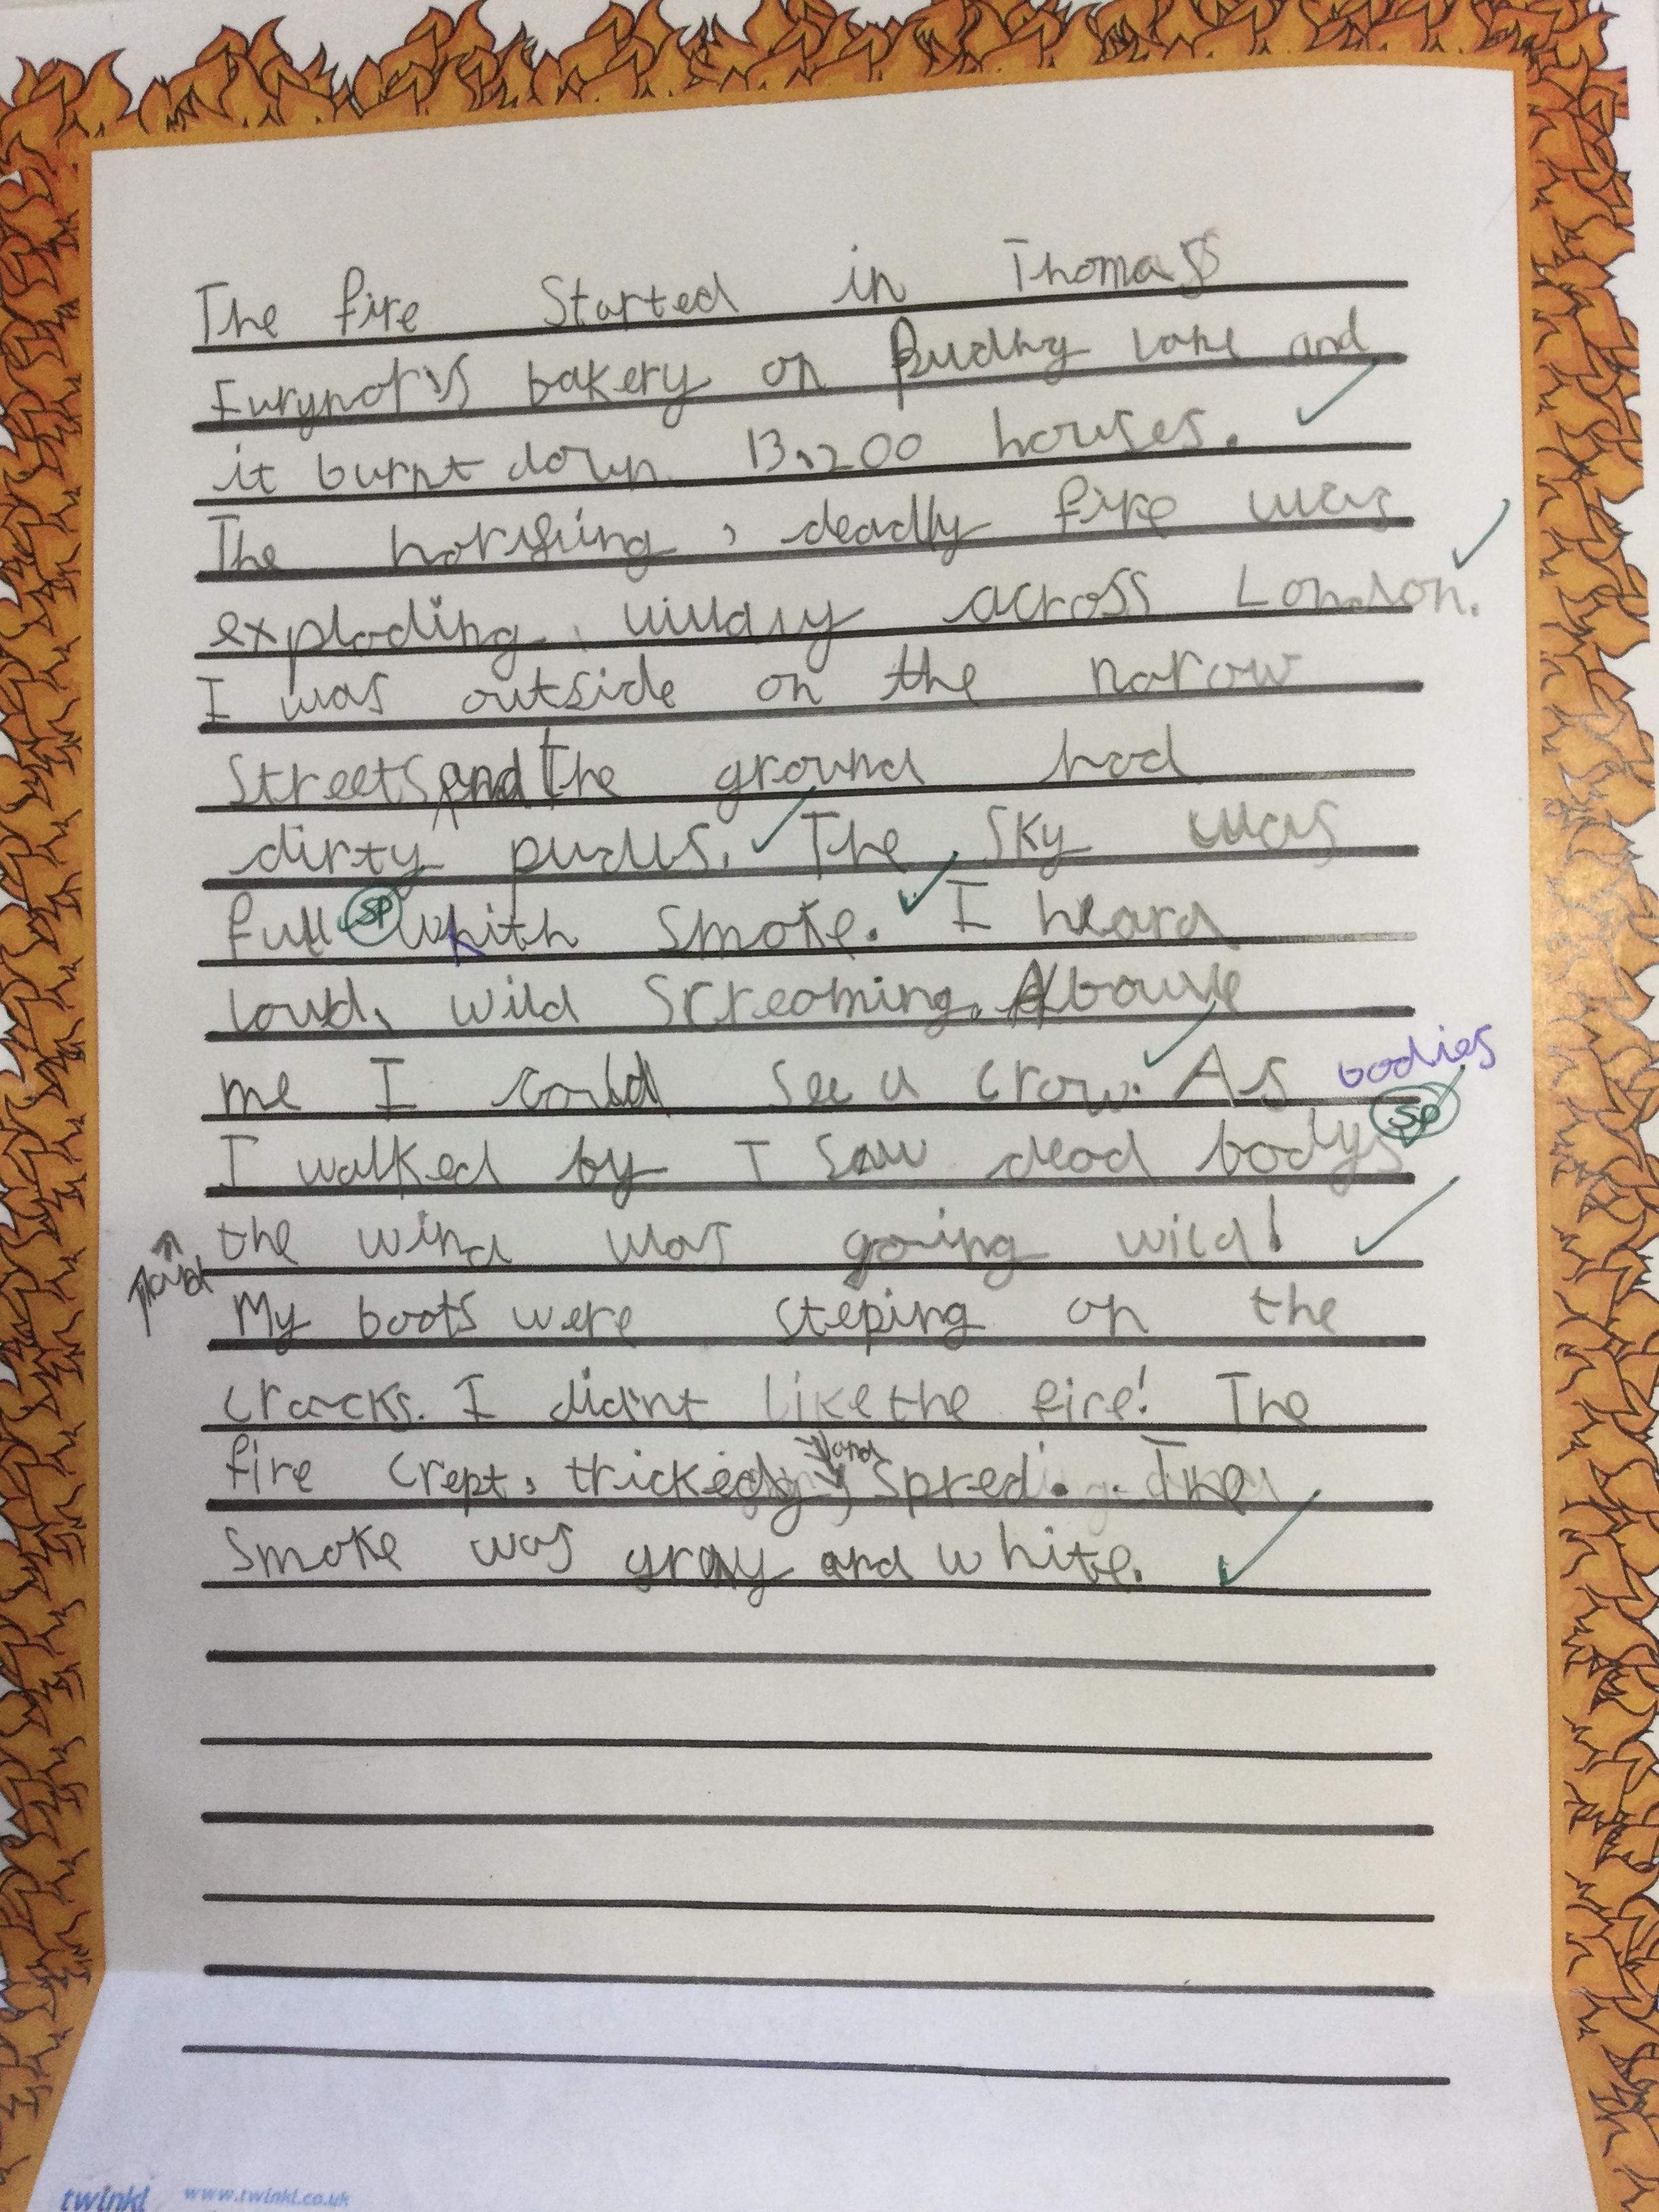 The fire Started in Thomas
Furynor's bakery on Pudding lane and
it burnt down 13,200 houses.
The horifiing, deadly fire was
exploding, wildly across London.
I was outside on the narow
Streets, and the ground had
dirty pudls. The sky was
full SP with smoke. I heard
loud, wild screaming. Abouve
me I could see a crow. As bodies
I walked by I saw dead bodys SP
and the wind was going wild!
My boots were steping on the
cracks. I didn't like the fire! The
fire crept, tricked, and spred. The
smoke was gray and white.
twinkl www.twinkl.co.uk